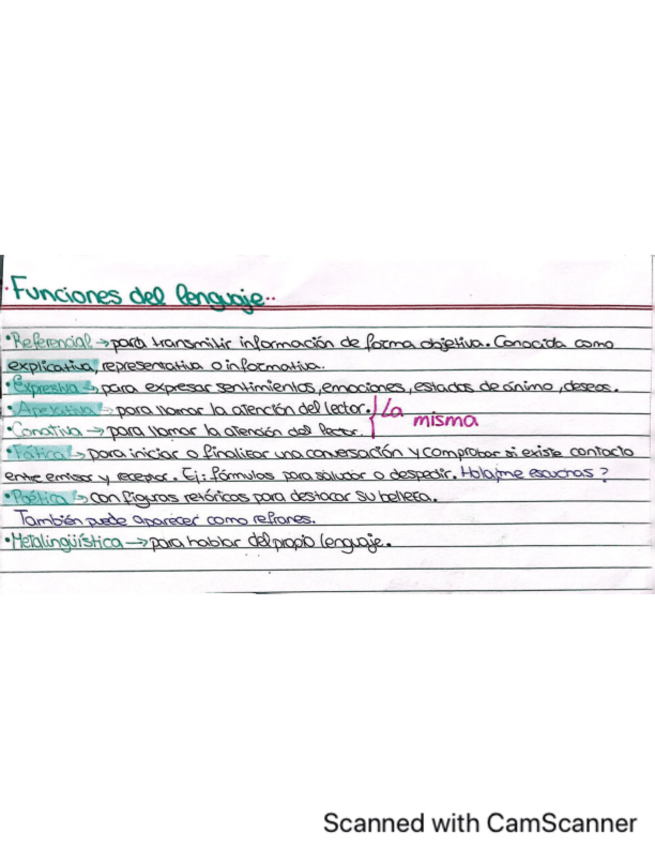 ·Funciones del lenguaje··
•Referencial → para transmitir información de forma objetiva. Conocida como
explicativa, representativa o informativa.
•Expresiva → para expresar sentimientos, emociones, estados de ánimo, deseos.
•Apelativa → para llamar la atención del lector. } La misma
•Conativa → para llamar la atención del lector.
•Fática → para iniciar o finalizar una conversación y comprobar si existe contacto
entre emisor y receptor. Ej: fórmulas para saludar o despedir. Hola¿me escuchas?
•Poética → con figuras retóricas para destacar su belleza.
También puede aparecer como refranes.
•Metalingüística → para hablar del propio lenguaje.
Scanned with CamScanner